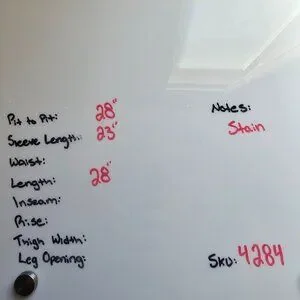 Pit to Pit: 28"
Sleeve Length: 23"
Waist:
Length: 28"
Inseam:
Rise:
Thigh Width:
Leg Opening:
Notes:
Stain
SKU: 4284